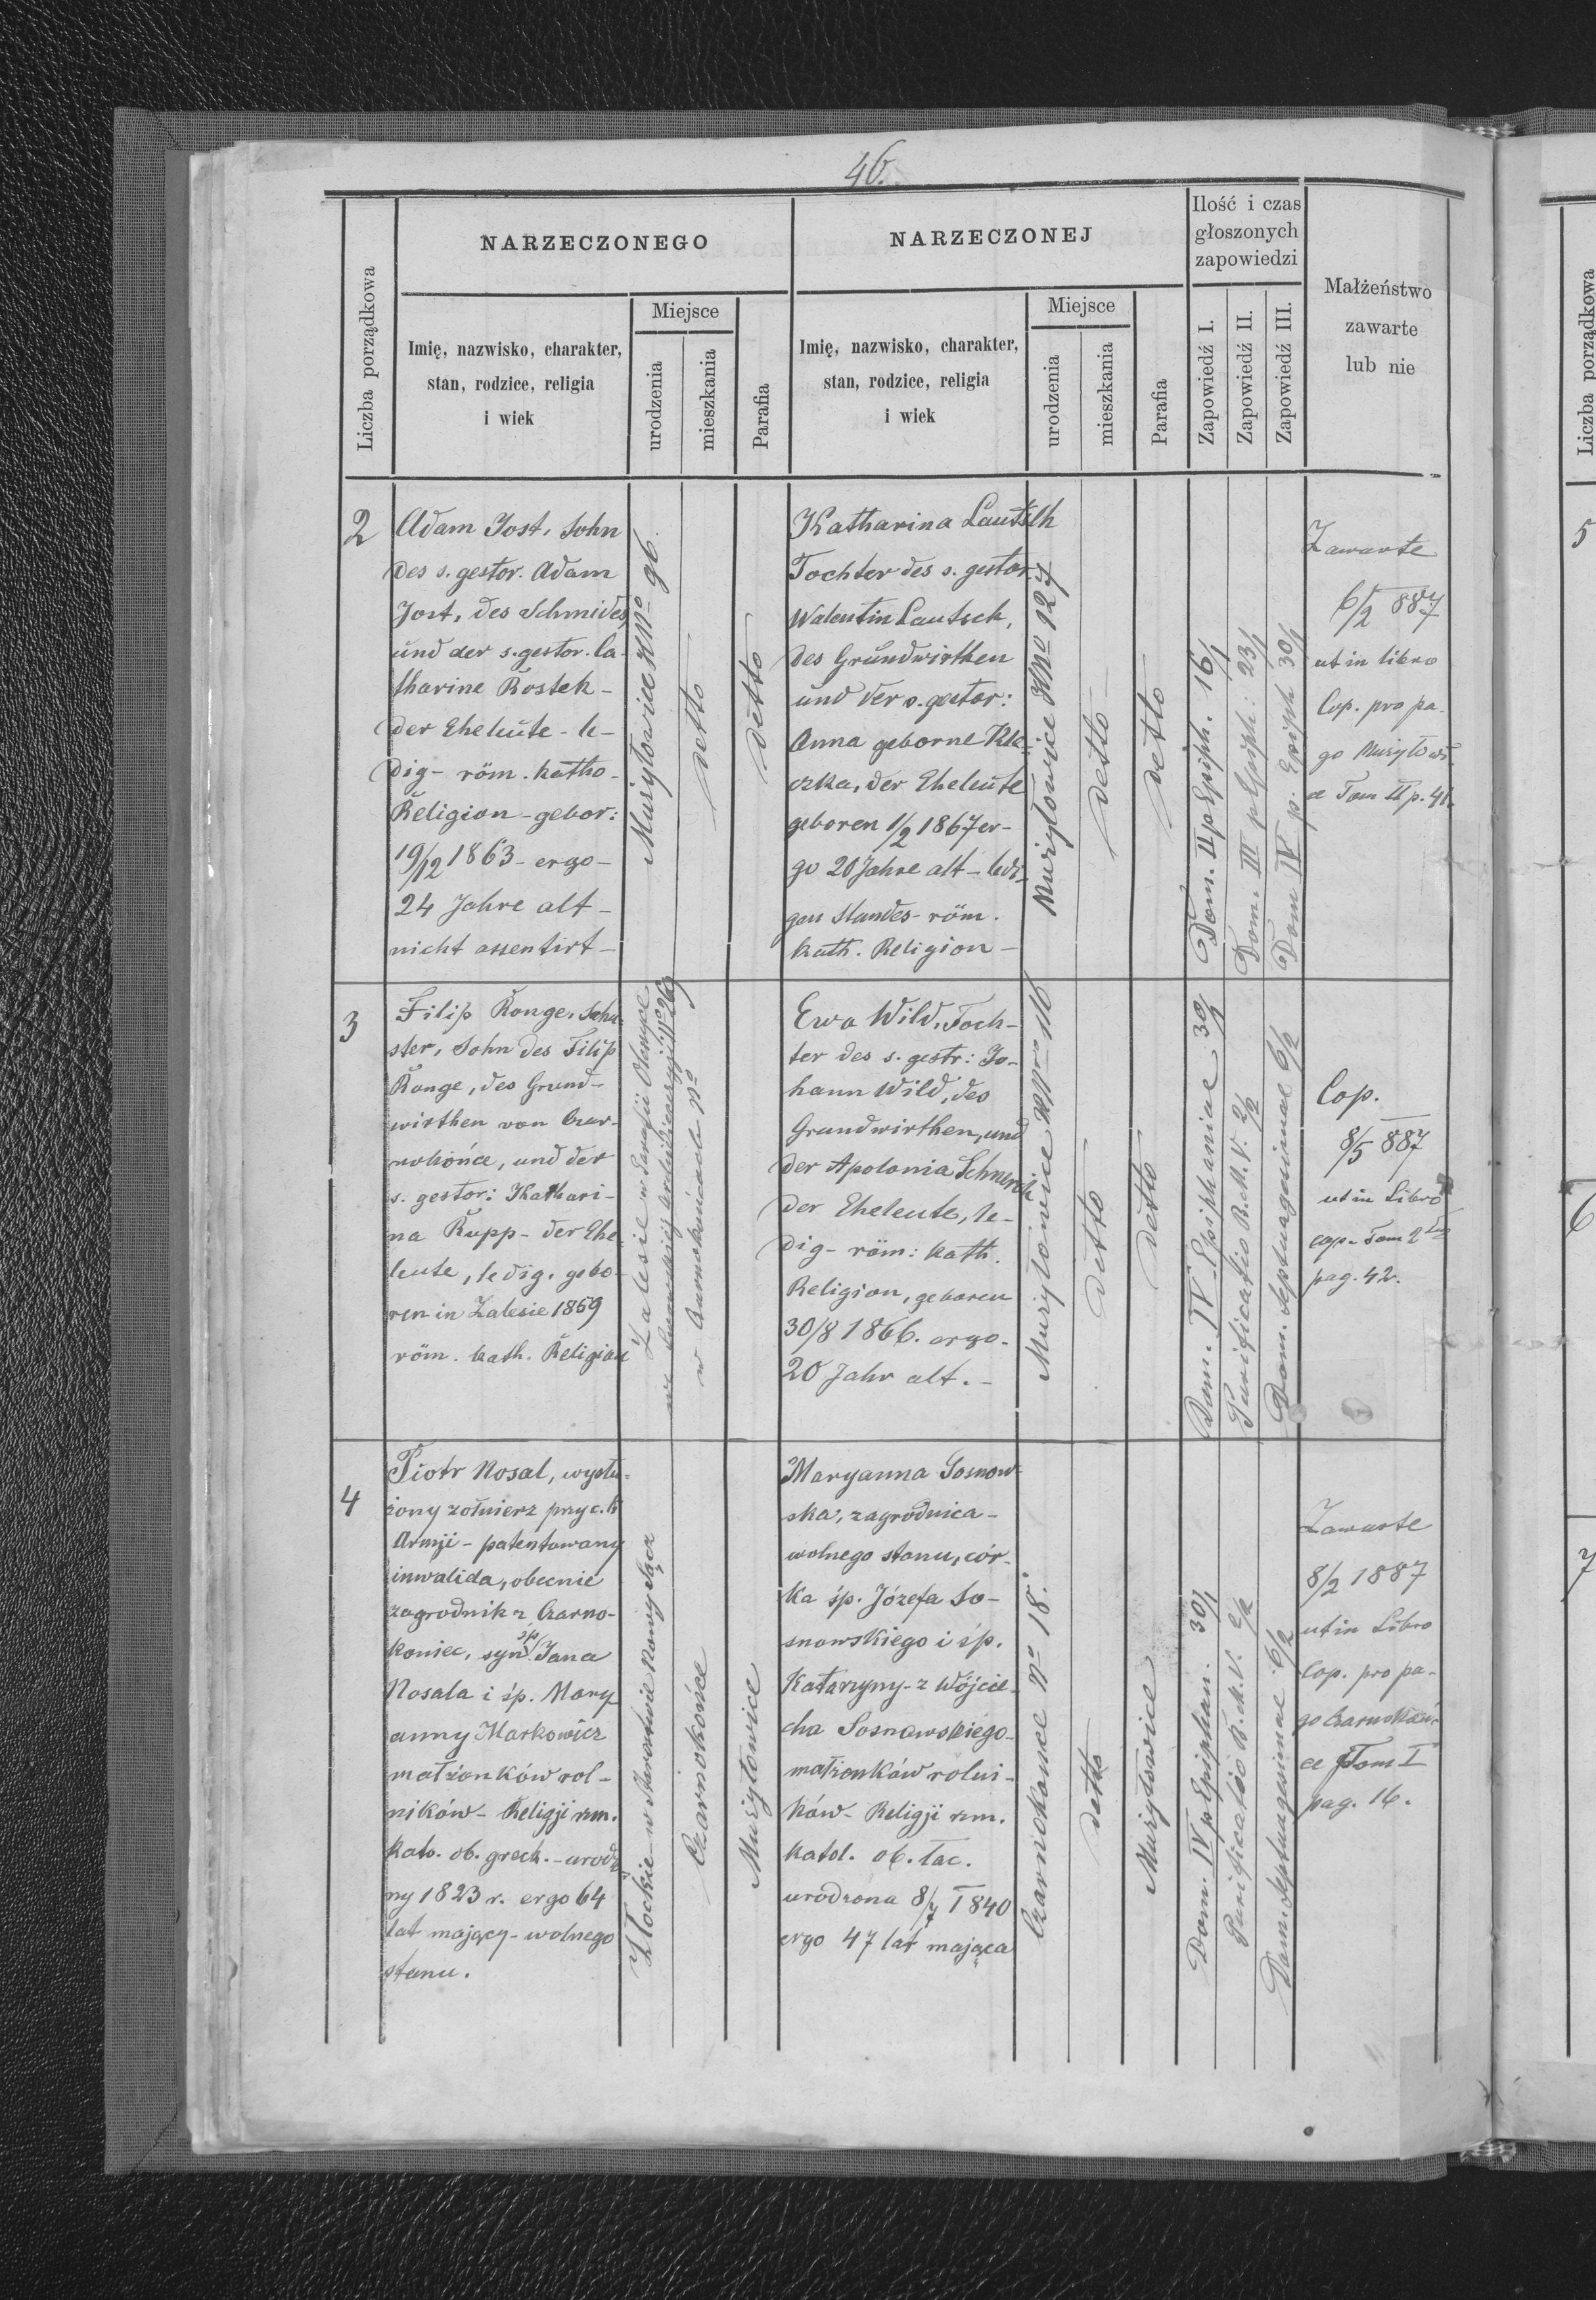 46.
Liczba porządkowa
NARZECZONEGO
NARZECZONEJ
Ilość i czas
głoszonych
zapowiedzi
Małżeństwo
zawarte
lub nie
Imię, nazwisko, charakter,
stan, rodzice, religia
i wiek
Miejsce
urodzenia
mieszkania
Parafia
Imię, nazwisko, charakter,
stan, rodzice, religia
i wiek
Miejsce
urodzenia
mieszkania
Parafia
Zapowiedź I.
Zapowiedź II.
Zapowiedź III.
2
Adam Jost, Sohn
des s. gestor. Adam
Jost, des Schmides,
und der s. gestor. Ca-
tharine Rostek-
der Eheleute - le-
dig - röm. katho-
Religion - gebor:
19/12 1863 - ergo -
24 Jahre alt -
nicht assentirt -
Muzyłowice N 96.
detto
detto
Katharina Lautsch
Tochter des s. gestor.
Walentin Lautsch,
des Grundwirthen
und der s. gestor:
Anna geborne Kle-
czka, der Eheleute
geboren 1/2 1867 er-
go 20 Jahre alt - ledi-
gen Standes - röm.
kath. Religion -
Muzyłowice 127
detto
detto
Dom. II p Epiph. 16/1
Dom. III p Epiph: 23/1
Dom IV p. Epiph 30/1
Zawarte
6/2 887
ut in libro
Cop. pro pa-
go Muzyłowi-
ce Tom II p. 41.
3
Filip Konge, Schu-
ster, Sohn des Filip
Konge, des Grund-
wirthen von Czar-
nokońce, und der
s. gestor: Kathari-
na Rupp - der Ehe-
leute, ledig, gebo-
ren in Zalesie 1859
röm. kath. Religion
Zalesie w Parafii
w Czarnokońcach No
Ewa Wild, Toch-
ter des s. gestr: Jo-
hann Wild, des
Grundwirthen, und
der Apolonia Schnerch
der Eheleute, le-
dig - röm: kath.
Religion, geboren
30/8 1866. ergo -
20 Jahr alt. -
Muzyłowice 110
detto
detto
Dom. IV Epiphaniae 30/1
Purificatio B.M.V. 2/2
Dom. Septuagesimae 6/2
Cop.
8/5 887
ut in Libro
cop. Tom 2
pag. 42.
4
Piotr Nosal, wysłu-
żony żołnierz przy c.k
Armji - patentowany
inwalida, obecnie
zagrodnik z Czarno-
koniec, syn śp Jana
Nosala i śp. Mary
anny Markowicz
małżonków rol-
ników - Religji rzm.
kato. ob. greck. - urodz
ny 1823 r. ergo 64
lat mający - wolnego
stanu.
Złockie w Starostwie Nowy Sącz
Czarnokońce
Muzyłowice
Maryanna Sosnow-
ska, zagrodnica -
wolnego stanu, cór-
ka śp. Józefa So-
snowskiego i śp.
Katarzyny - z Wójcie-
cha Sosnowskiego -
małżonków rolni-
ków - Religji rzm.
katol. ob. łac.
urodzona 8/7 1840
ergo 47 lat mająca
Czarnokonce No 18.
detto
Muzyłowice
Dom. IV p Epiphan. 30/1
Purificatio B.M.V. 2/2
Dom. Septuagesimae 6/2
Zawarte
8/2 1887
ut in Libro
Cop. pro pa-
go Czarnokoń-
ce Tom I
pag. 16.
Liczba porządkowa
5
6
7